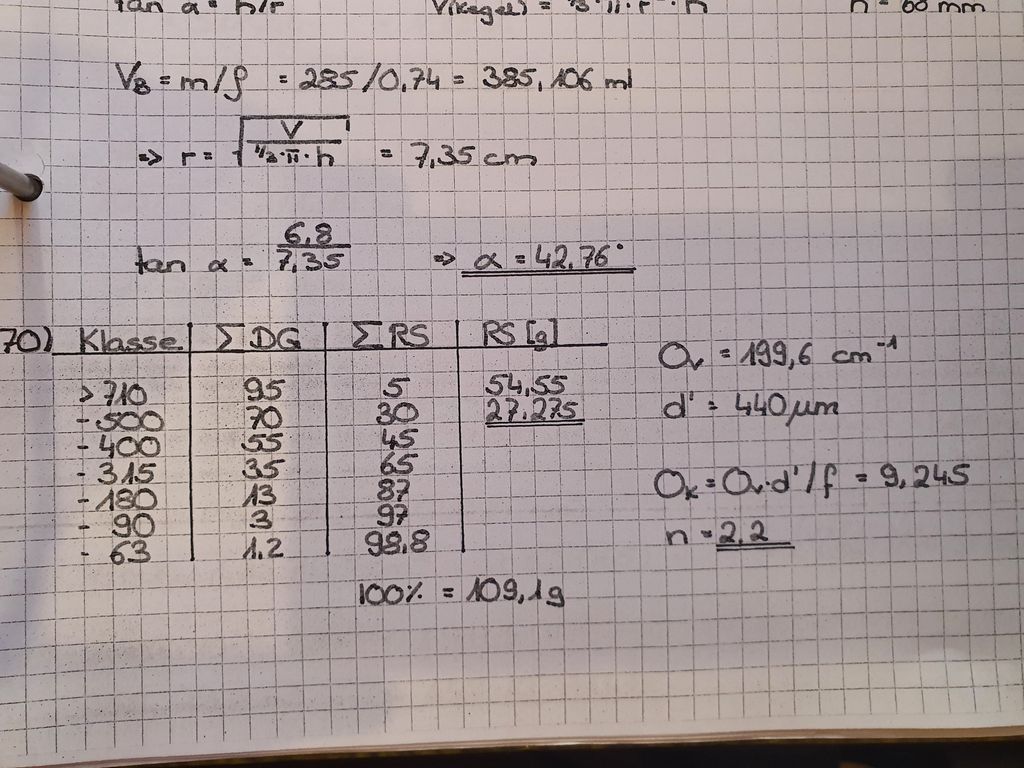 tan α = h/r V(Kegel) = ⅓·π·r²·h h = 68 mm
V_B = m/ρ = 285/0,74 = 385,106 ml
=> r = √(V / ⅓·π·h) = 7,35 cm
tan α = 6,8/7,35 => α = 42,76°
70) Klasse ΣDG ΣRS RS [g]
>710 95 5 54,55
-500 70 30 27,275
-400 55 45
-315 35 65
-180 13 87
-90 3 97
-63 1,2 98,8
100% = 109,1g
O_v = 199,6 cm⁻¹
d' = 440 µm
O_k = O_v·d'/f = 9,245
n = 2,2